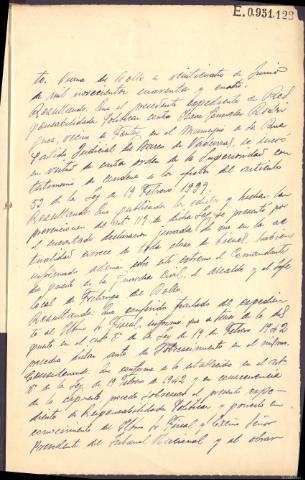 E.0.931.123
to. Viana de Bollo a veinticuatro de Junio
de mil novecientos cuarenta y cuatro.
Resultando: Que el precedente expediente de Res-
ponsabilidades Políticas contra
vecino de en el Municipio de La Rua
Partido Judicial de Barco de Valdeorras, se incoó
en virtud de carta orden de la Superioridad con
testimonio de condena a los efectos del artículo
53 de la Ley de 19 Febrero 1939.
Resultando: Que publicado el edicto y hechas las
prevenciones del art. 49 de dicha Ley se presentó por
el encartado declaración jurada de que en la ac-
tualidad carece de toda clase de bienes, habiendo
informado además sobre este extremo el Comandante
de puesto de la Guardia Civil, el Alcalde y el Jefe
local de Falange del Valle.
Resultando: Que conferido traslado del expedien-
te al Fiscal, informa que a tenor de lo dis-
puesto en el art. 8º de la Ley de 19 de Febrero 1942
procede dictar auto de Sobreseimiento en el mismo.
Considerando: Que conforme a lo establecido en el art.
8º de la Ley de 19 Febrero de 1942, y en consecuencia
de lo expuesto, procede sobreseer el presente expe-
diente de Responsabilidades Políticas y ponerlo en
conocimiento de Fiscal y Excmo Señor
Presidente del Tribunal Nacional y al obrar